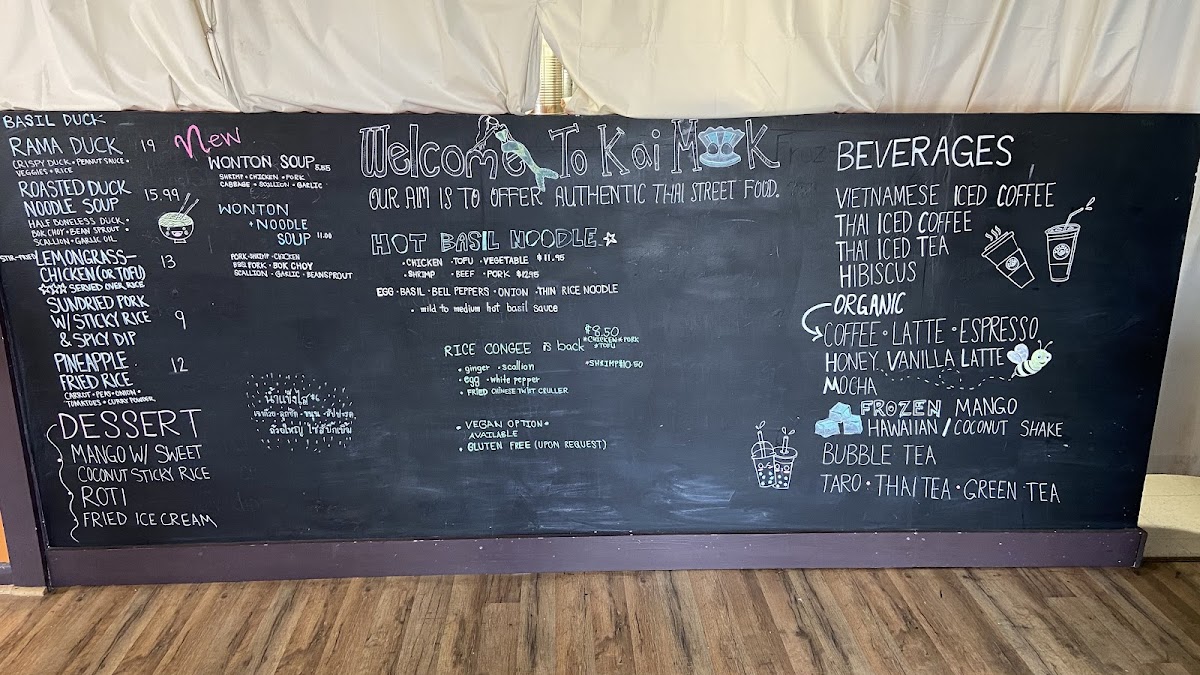 BASIL DUCK
RAMA DUCK 19
CRISPY DUCK • PEANUT SAUCE •
VEGGIES • RICE
ROASTED DUCK 15.99
NOODLE SOUP
HALF BONELESS DUCK •
BOK CHOY • BEAN SPROUT •
SCALLION • GARLIC OIL
STIR-FRIED LEMONGRASS-
CHICKEN (OR TOFU) 13
SERVED OVER RICE
SUNDRIED PORK
W/ STICKY RICE 9
& SPICY DIP
PINEAPPLE 12
FRIED RICE
CARROT • PEAS • ONION •
TOMATOES • CURRY POWDER
DESSERT
MANGO W/ SWEET
COCONUT STICKY RICE
ROTI
FRIED ICE CREAM
New
WONTON SOUP 8.85
SHRIMP • CHICKEN • PORK
CABBAGE • SCALLION • GARLIC
WONTON
+ NOODLE
SOUP 11.00
PORK • SHRIMP • CHICKEN
BBQ PORK • BOK CHOY
SCALLION • GARLIC • BEANSPROUT
น้ำแข็งใส
ถ้วยใหญ่ ใช้สั่งเข้ม
Welcome To Kai Mook
OUR AIM IS TO OFFER AUTHENTIC THAI STREET FOOD.
HOT BASIL NOODLE
• CHICKEN • TOFU • VEGETABLE $11.95
• SHRIMP • BEEF • PORK $12.95
EGG • BASIL • BELL PEPPERS • ONION • THIN RICE NOODLE
• mild to medium hot basil sauce
RICE CONGEE is back
$8.50
*CHICKEN *PORK
*TOFU
*SHRIMP $10.50
• ginger • scallion
• egg • white pepper
• FRIED CHINESE TWIST CRULLER
• VEGAN OPTION •
AVAILABLE
• GLUTEN FREE (UPON REQUEST)
BEVERAGES
VIETNAMESE ICED COFFEE
THAI ICED COFFEE
THAI ICED TEA
HIBISCUS
ORGANIC
COFFEE • LATTE • ESPRESSO
HONEY VANILLA LATTE
MOCHA
FROZEN MANGO
HAWAIIAN / COCONUT SHAKE
BUBBLE TEA
TARO • THAI TEA • GREEN TEA